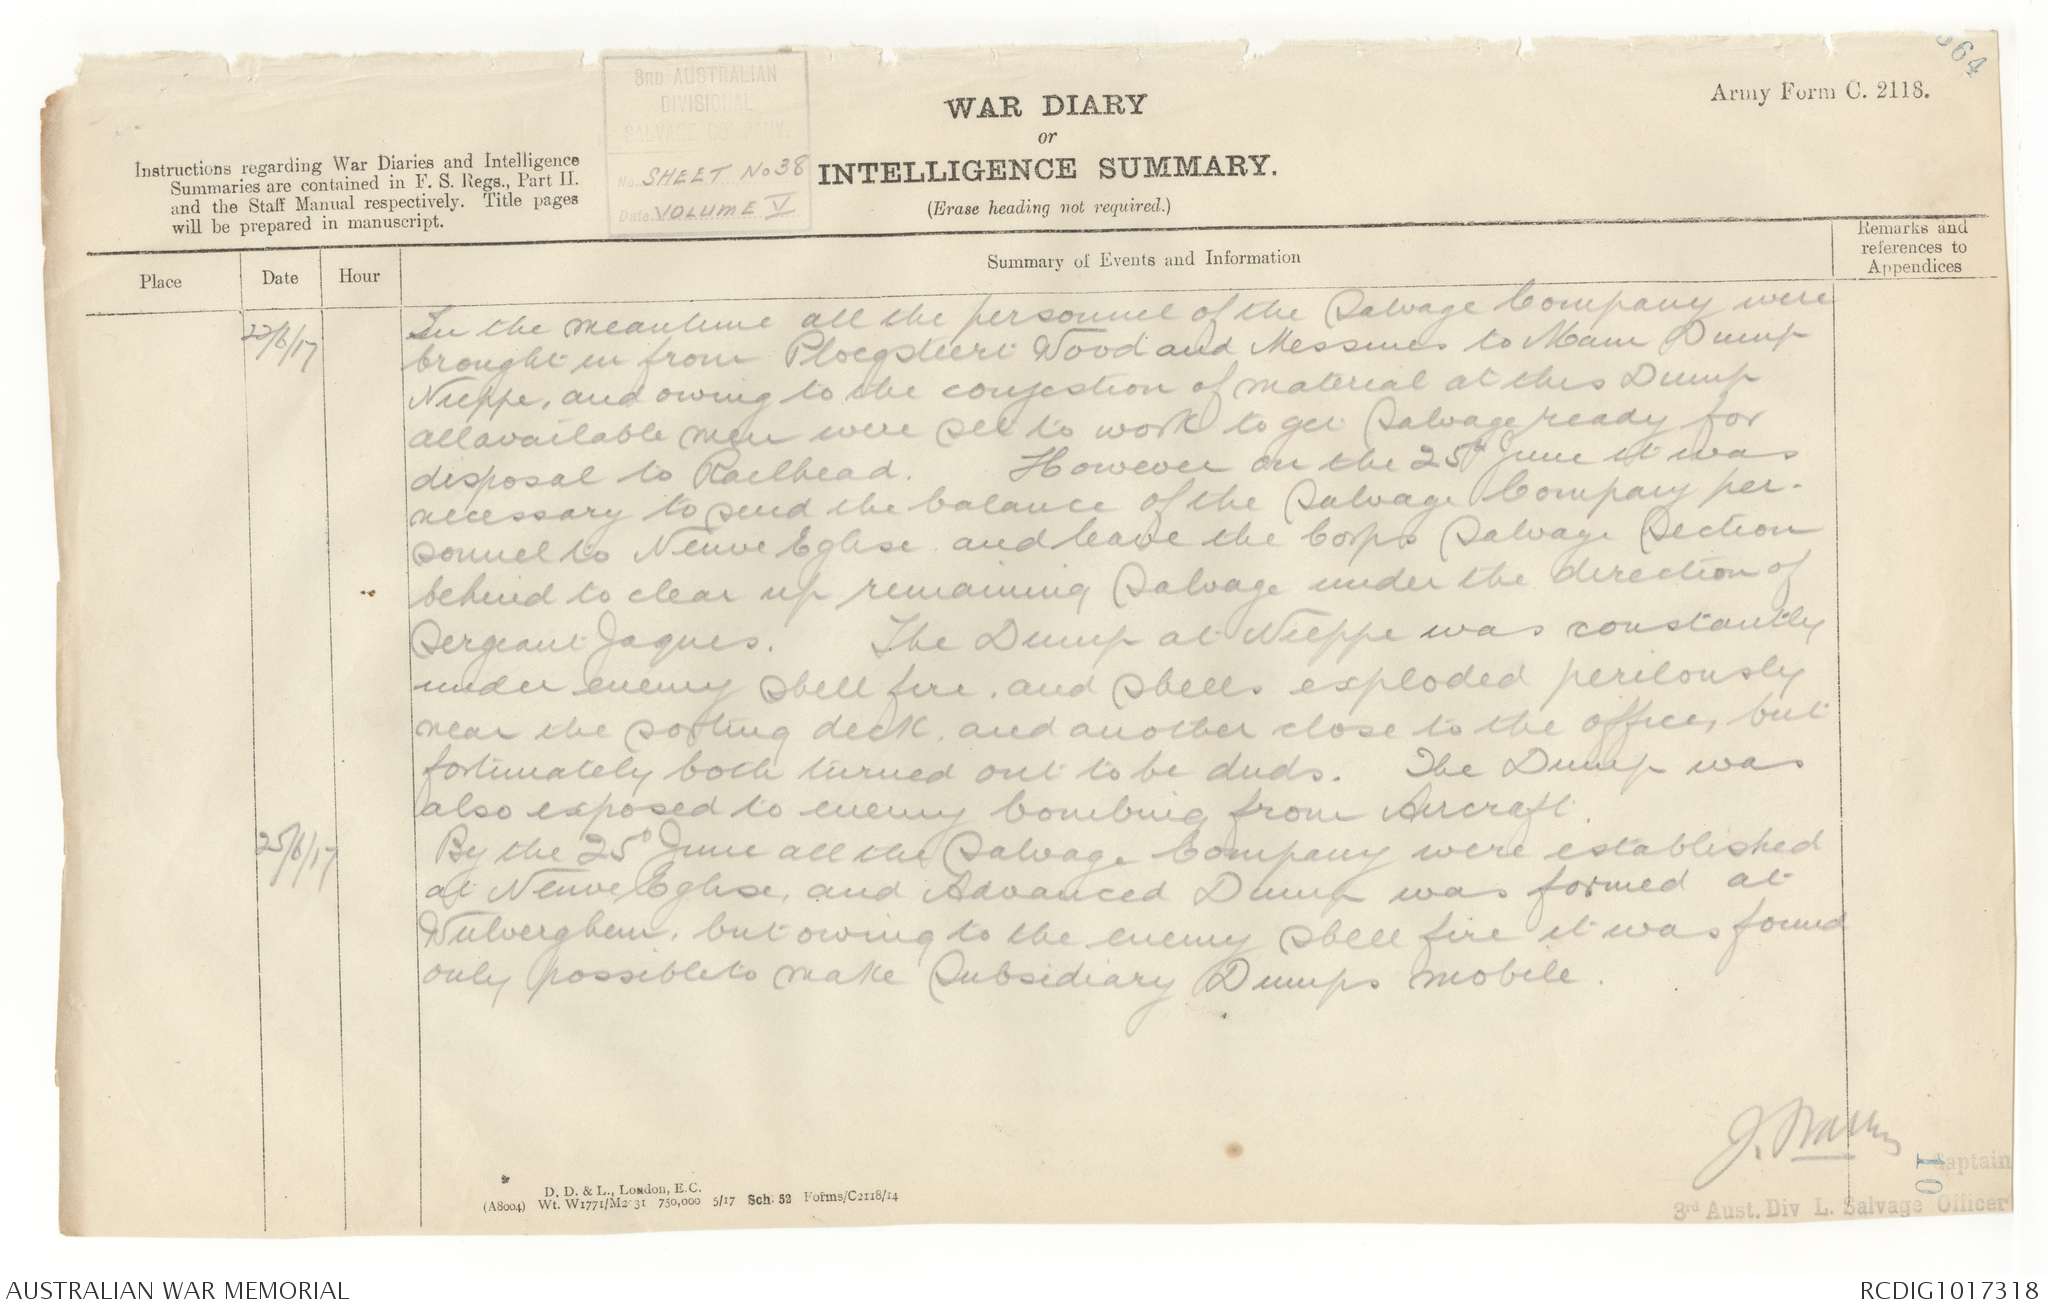 364
Army Form C. 2118.
3RD AUSTRALIAN
DIVISIONAL
SALVAGE COMPANY.
No. SHEET No 38
Date VOLUME V
WAR DIARY
or
INTELLIGENCE SUMMARY.
(Erase heading not required.)
Instructions regarding War Diaries and Intelligence
Summaries are contained in F. S. Regs., Part II.
and the Staff Manual respectively. Title pages
will be prepared in manuscript.
Place
Date
Hour
Summary of Events and Information
Remarks and
references to
Appendices
22/6/17
In the meantime all the personnel of the Salvage Company were
brought in from Ploegsteert Wood and Messines to Main Dump
Nieppe, and owing to the conjestion of material at this Dump
all available men were set to work to get Salvage ready for
disposal to Railhead. However on the 25th June it was
necessary to send the balance of the Salvage Company per-
sonnel to Neuve Eglise and leave the Corps Salvage Section
behind to clear up remaining Salvage under the direction of
Sergeant Jaques. The Dump at Nieppe was constantly
under enemy shell fire, and shells exploded perilously
near the sorting deck, and another close to the office, but
fortunately both turned out to be duds. The Dump was
also exposed to enemy bombing from Aircraft.
25/6/17
By the 25th June all the Salvage Company were established
at Neuve Eglise, and Advanced Dump was formed at
Wulverghem, but owing to the enemy shell fire it was found
only possible to make Subsidiary Dumps mobile.
J.
Captain
10
3rd Aust. Div L. Salvage Officer
D. D. & L., London, E.C.
(A8004) Wt. W1771/M2 31 750,000 5/17 Sch. 52 Forms/C2118/14
AUSTRALIAN WAR MEMORIAL
RCDIG1017318